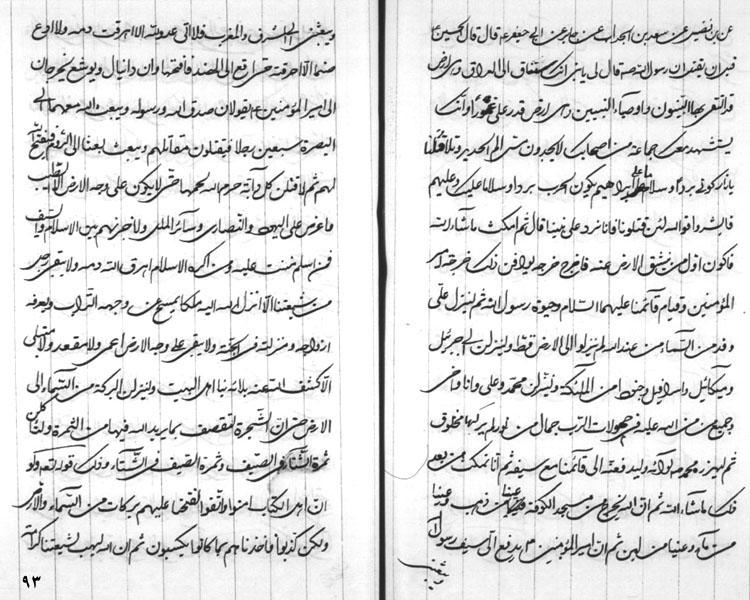 قال قال الحسين ع
قبل ان يقتل ان رسول الله صه قال لي يا بني انك ستساق الى العراق وهى ارض
قد التقى بها النبيون واوصياء النبيين وهى ارض وانك
يستشهد معك جماعة من اصحابك لا يجدون الم الحديد وتلا قلنا
يا نار كونى بردا وسلاما على ابراهيم يكون الحرب بردا وسلاما عليك وعليهم
فابشروا فوالله لئن قتلونا فانا نرد على نبينا قال ثم امكث ما شاء الله
فاكون اول من ينشق الارض عنه فاخرج خرجة يوافق ذلك خرجة امير
المؤمنين وقيام قائمنا عليهما السلام وحيوة رسول الله ثم لينزل علىّ
وفد من السماء من عند الله لم ينزلوا الى الارض قط ولينزلن الي جبرئيل
وميكائيل واسرافيل وجنود من الملائكة ولينزلن محمد وعلى وانا واخى
وجميع من من الله عليه فى حمولات الرب جمال من نور لم يركبها مخلوق
ثم ليهزن محمد صه لوائه وليدفعنه الى قائمنا مع سيفه ثم انا نمكث من بعد
ذلك ما شاء الله ثم ان الله يخرج من مسجد الكوفة عينا من ذهب وعينا
من ماء وعينا من لبن ثم ان امير المؤمنين ع يدفع الى سيف رسول الله
ويبعثنى
ويبعثنى الى الشرق والمغرب فلا اتى عدو لله الا اهرقت دمه ولا ادع
صنما الا احرقته حتى اقع الى الهند فافتحها وان دانيال ويوشع يخرجان
الى امير المؤمنين ع يقولان صدق الله ورسوله ويبعث الله معهما الى
البصرة سبعين رجلا فيقتلون مقاتليهم ويبعث بعثا الى الروم فيفتح الله
لهم ثم لاقتلن كل دابة حرم الله لحمها حتى لا يكون على وجه الارض الا الطيب
واعرض على اليهود والنصارى وسائر الملل ولاخيرنهم بين الاسلام والسيف
فمن اسلم مننت عليه ومن اكره الاسلام اهرق الله دمه ولا يبقى رجل
من شيعتنا الا انزل الله اليه ملكا يمسح عن وجهه التراب ويعرفه
ازواجه ومنزلته فى الجنة ولا يبقى على وجه الارض اعمى ولا مقعد ولا مبتلى
الا كشف الله عنه بلائه بنا اهل البيت ولينزلن البركة من السماء الى
الارض حتى ان الشجرة لتقصف بما يريد الله فيها من الثمرة ولتاكلن
ثمرة الشتاء فى الصيف وثمرة الصيف فى الشتاء وذلك قوله تعالى ولو
ان اهل الكتاب امنوا واتقوا لفتحنا عليهم بركات من السماء والارض
ولكن كذبوا فاخذناهم بما كانوا يكسبون ثم ان الله ليهب لشيعتنا كرامة
٩٣